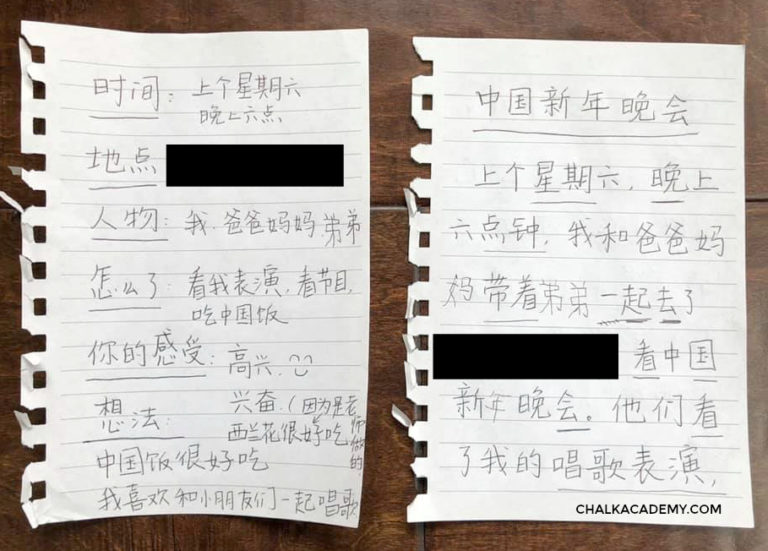 时间：上个星期六
晚上六点
地点
人物：我.爸爸妈妈弟弟
怎么了：看我表演.看节目.
吃中国饭
你的感受：高兴.
想法：兴奋.(因为是老师做的
西兰花很好吃
中国饭很好吃
我喜欢和小朋友们一起唱歌
中国新年晚会
上个星期六，晚上
六点钟，我和爸爸妈
妈带着弟弟一起去了
看中国
新年晚会。他们看
了我的唱歌表演，
CHALKACADEMY.COM